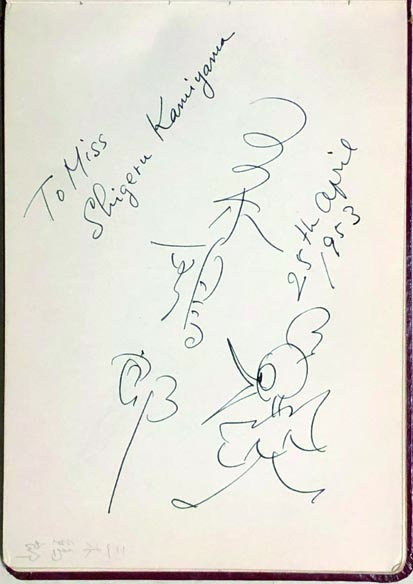 To Miss
Shigeru Kamiyama
25th april
1953
三木鶏郎